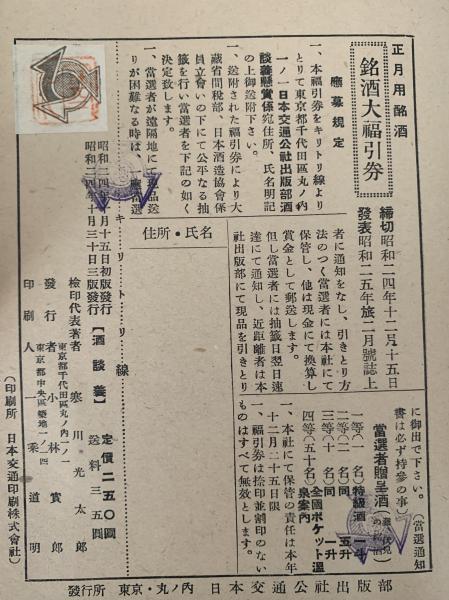 正月用酩酒
銘酒大福引券
締切昭和二四年十二月十五日
發表昭和二五年旅二月號誌上
應募規定
一、本福引券をキリトリ線より
とりて東京都千代田區丸ノ內
一ノ一日本交通公社出版部酒
談義懸賞係宛住所、氏名明記
の上御送附下さい。
一、送附された福引券により大
藏省間税部、日本酒造協會係
員立會いの下にて公平なる抽
籤を行い當選者を下記の如く
決定致します。
一、當選者が遠隔地にて現品送
りが困難なる時は
者に通知をなし、引きとり方
法のつく當選者には本社にて
保管し、他は現金にて換算し
賞金として郵送します。
但し當選者には抽籤日翌日速
達にて通知し、近距離者は本
社出版部にて現品を引きとり
に御出で下さい。(當選通知
書は必ず持參の事)
當選者贈呈酒
一等(一名)特級酒一斗
二等(二名)同 五升
三等(十名)同 一升
四等(五十名)全國ポケット溫
泉案內
一、本社にて保管の責任は本年
十二月二十五日限
一、福引券は捺印並割印のない
ものはすべて無效とします。
住所・氏名
キリトリ線
昭和二四年十月十五日初版發行
昭和二四年十月三十日三版發行
【酒談義】
定價二五〇圓
送料三五圓
檢印代表著者 寒川光太郎
東京都千代田區丸ノ內一ノ一
發行者 小林實
東京都中央區築地一ノ一四
印刷人 一栗道明
(印刷所 日本交通印刷株式會社)
發行所 東京・丸ノ內 日本交通公社出版部